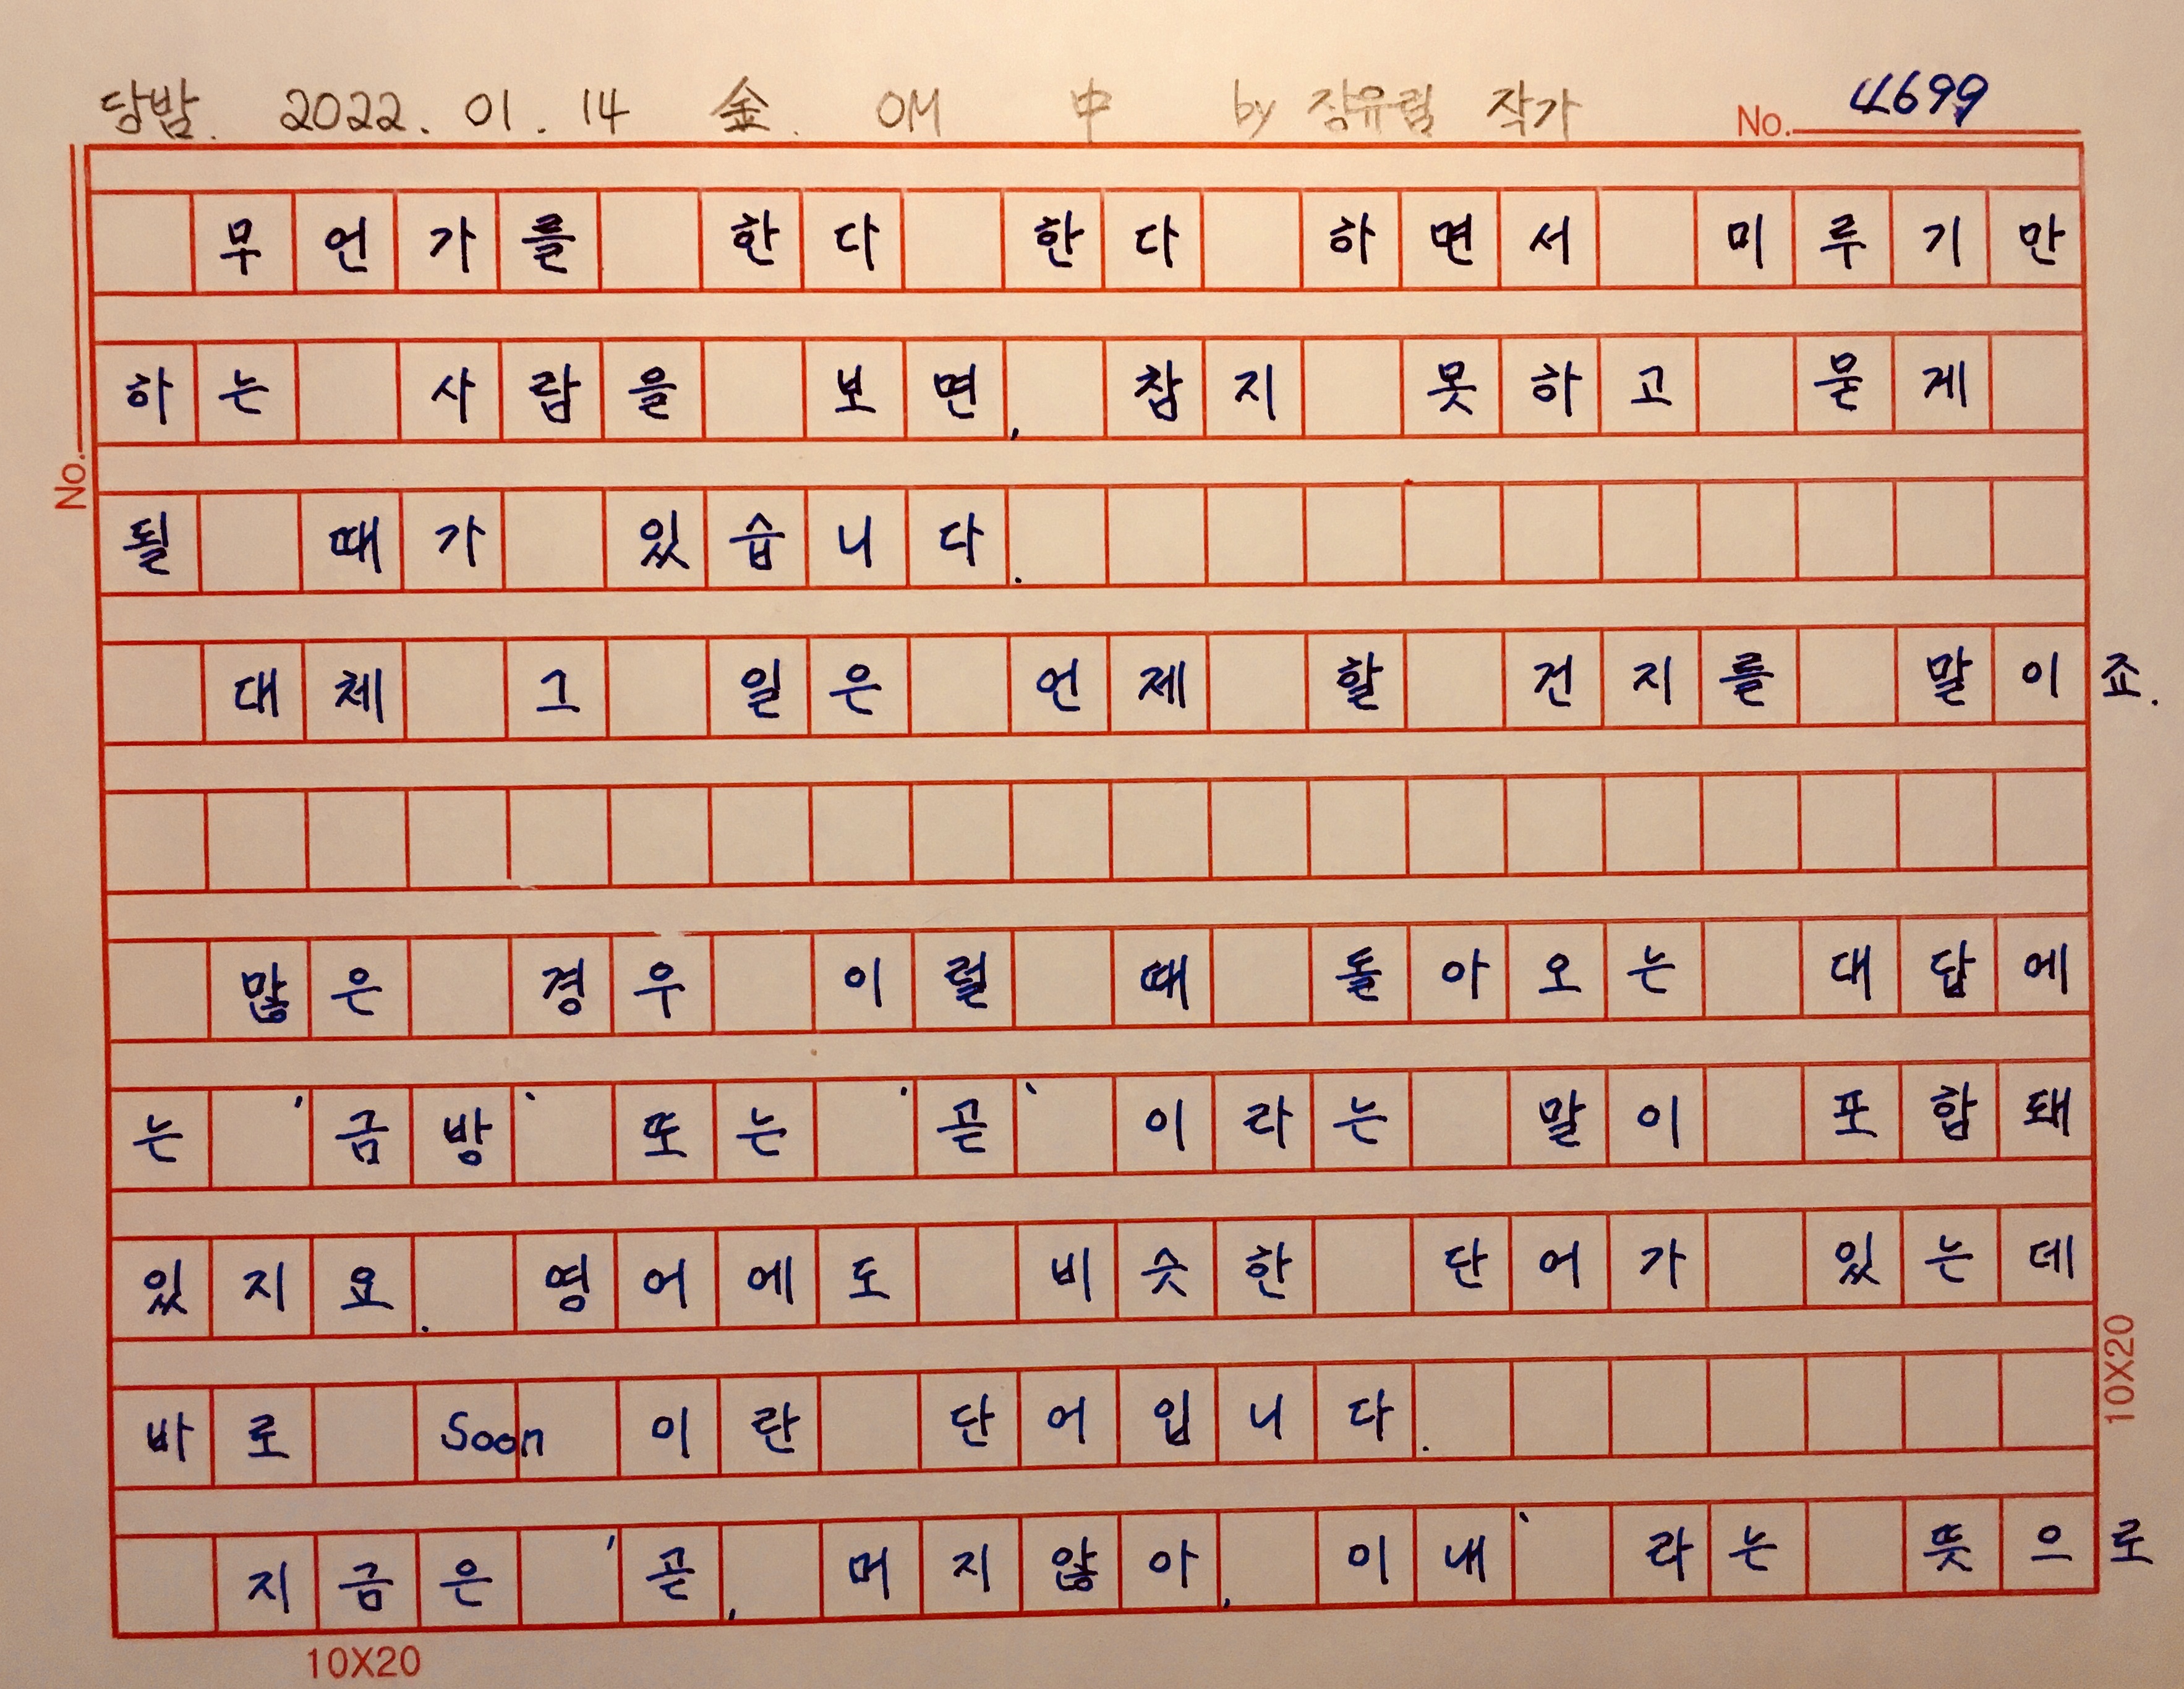 당밤. 2022. 01. 14 金. OM 中 by 장유림 작가 No. 4699
무언가를 한다 한다 하면서 미루기만
하는 사람을 보면, 참지 못하고 묻게
될 때가 있습니다.
대체 그 일은 언제 할 건지를 말이죠.
많은 경우 이럴 때 돌아오는 대답에
는 '금방' 또는 '곧' 이라는 말이 포함돼
있지요. 영어에도 비슷한 단어가 있는데
바로 Soon 이란 단어입니다.
지금은 '곧, 머지않아, 이내' 라는 뜻으로
No.
10X20
10X20